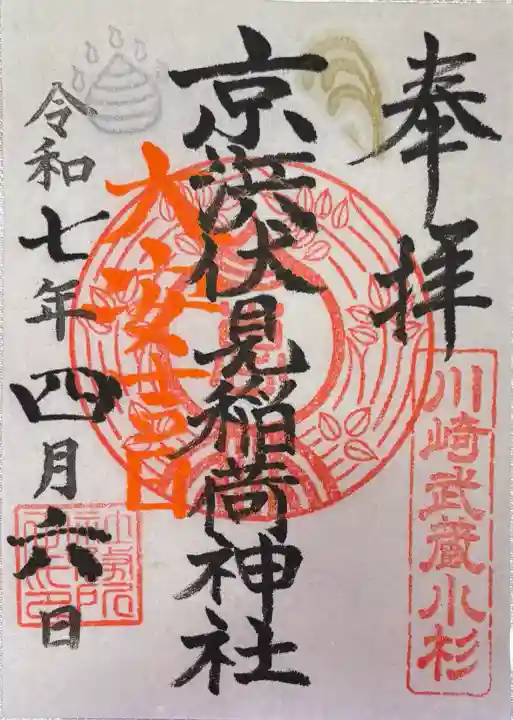 奉拝
川崎武蔵小杉
京濱伏見稲荷神社
大安吉日
令和七年四月六日
社務所